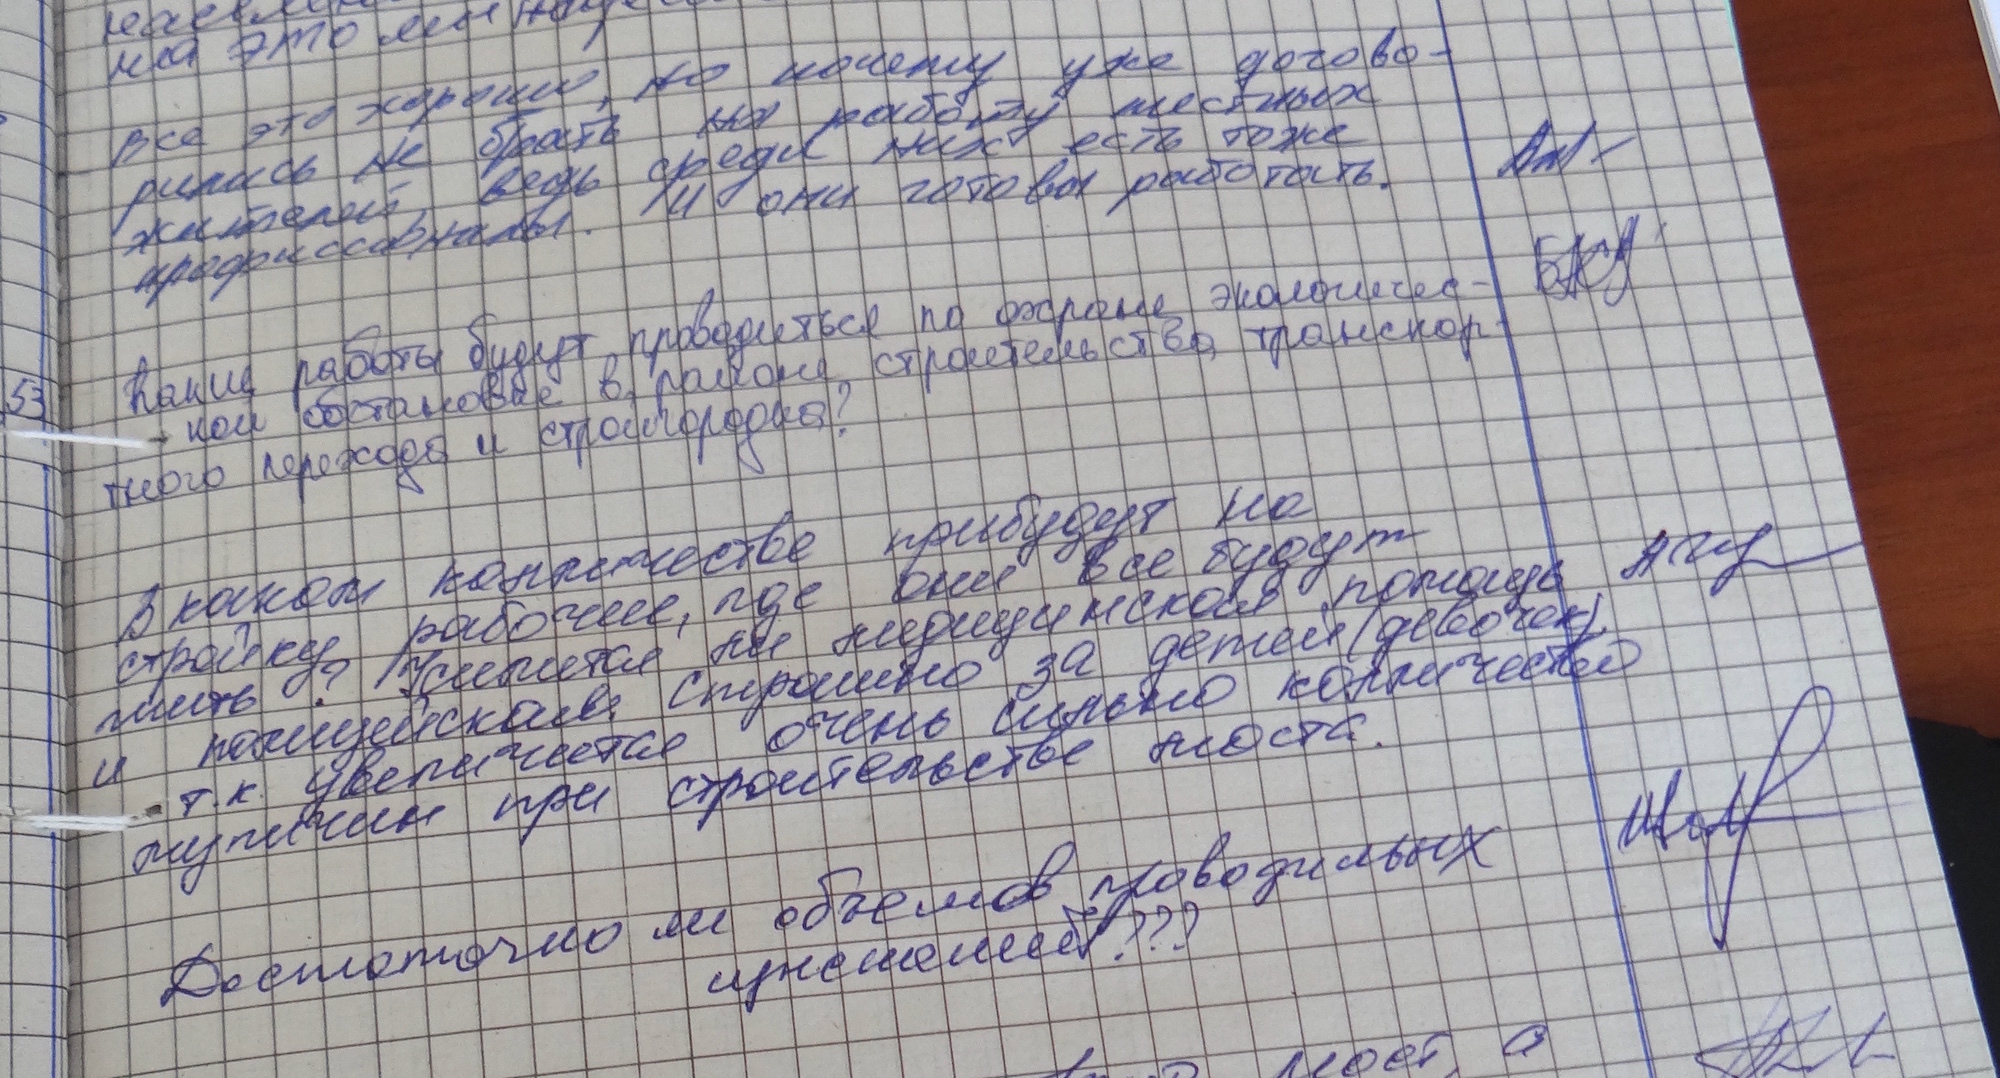 на это мы
Все это хорошо, но почему уже догово-
рились не брать на работу местных
жителей, ведь среди них есть тоже
профиссианалы. И они готовы работать.
Какие работы будут проводиться по охране экологичес-
кой обстановке в районе строительства транспор-
тного перехода и стройгородка?
53
В каком колличестве прибудут на
стройку рабочие, где они все будут
жить? Усилится ли медицинская помощь
и полицейская. Страшно за детей (девочек),
т.к. увеличется очень сильно колличество
мужчин при строительстве моста.
Достаточно ли объемов проводимых
изменений???
мост, а